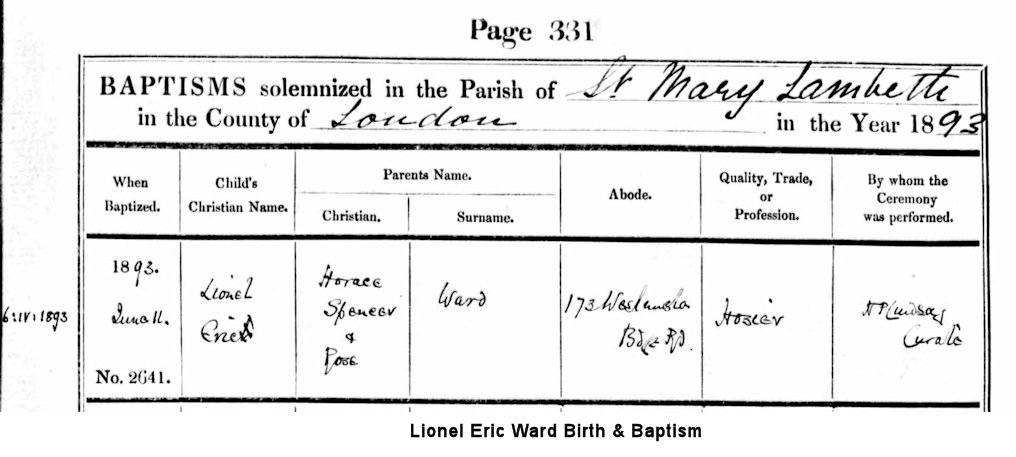 Page 331
BAPTISMS solemnized in the Parish of St Mary Lambeth
in the County of London in the Year 1893
When Baptized.
Child's Christian Name.
Parents Name.
Christian.
Surname.
Abode.
Quality, Trade, or Profession.
By whom the Ceremony was performed.
6:IV:1893
1893.
June 11.
No. 2641.
Lionel
Eric
Horace
Spencer
&
Rose
Ward
173 Westminster
Bdge Rd.
Hosier
Lindsay
Curate
Lionel Eric Ward Birth & Baptism